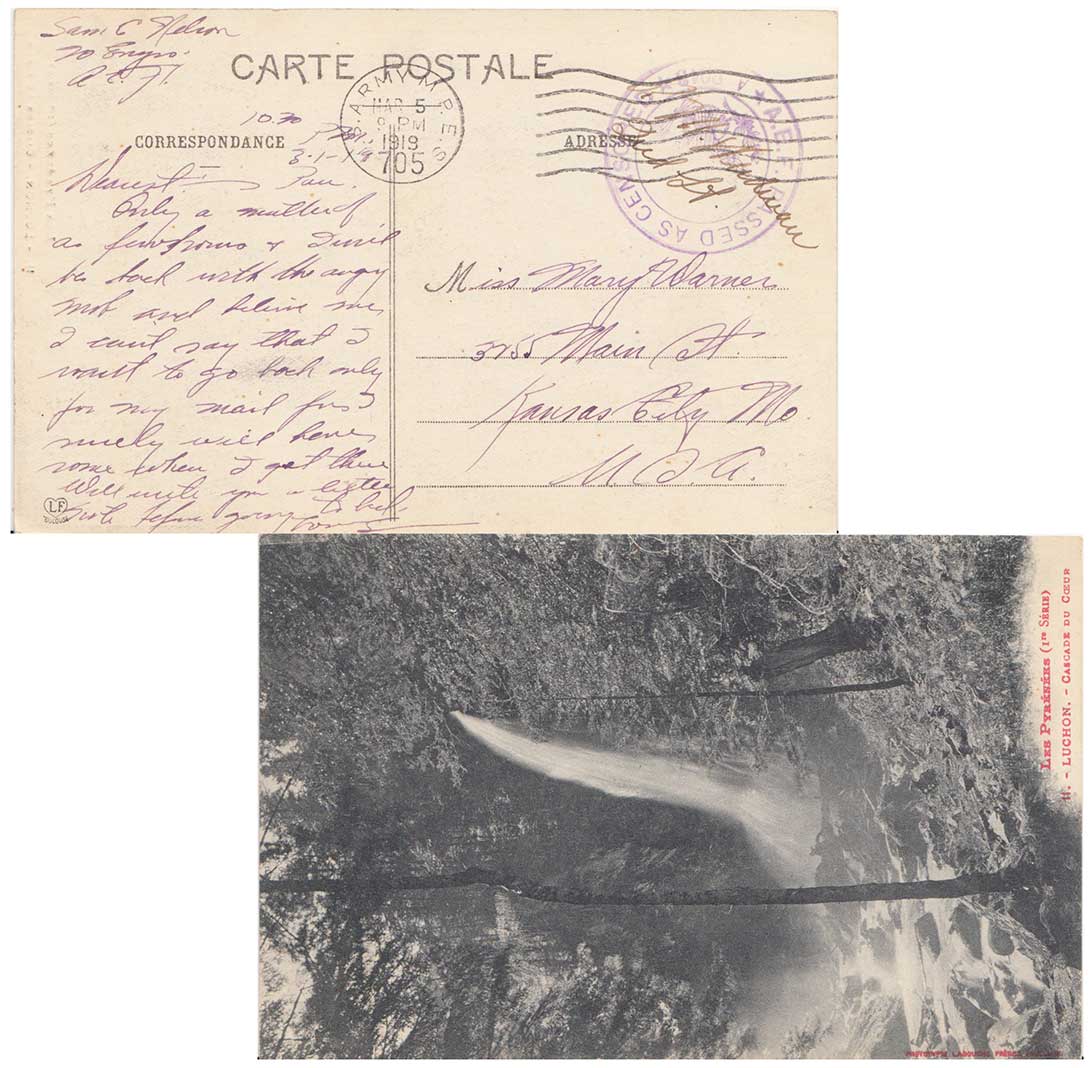 Sam C Nelson
20 Engrs.
A.E.F.
CARTE POSTALE
U.S. ARMY M.P.E.S.
MAR 5
PM
1919
705
A.E.F. PASSED AS CENSORED
10.30 P.M.
3-1-19
CORRESPONDANCE
ADRESSE
Dearest :- Pau.
Only a matter of
a few hours & I will
be back with the angry
mob and believe me
I can't say that I
want to go back only
for my mail for I
surely will have
some when I get there
Will write you a better
note before going to bed.
Miss Mary Warner
3255 Main St.
Kansas City Mo.
U.S.A.
LF
TOULOUSE
LES PYRÉNÉES (1re SÉRIE)
11. - LUCHON. - CASCADE DU CŒUR
PHOTOTYPIE LABOUCHE FRÈRES, TOULOUSE